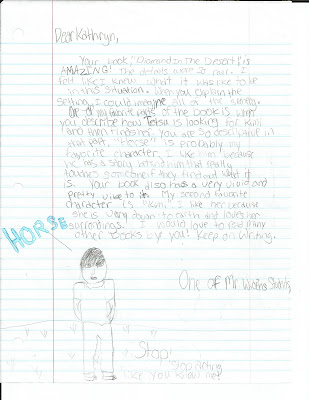 Dear Kathryn,
Your book, "Diamond In The Desert," is
AMAZING! The details were so real. I
felt like I knew what it was like to be
in this situation. When you explain the
setting, I could imagine all of the scenery.
One of my favorite parts of the book is when
you describe how Tetsu is looking for Kimi
and then finds her. You are so descriptive in
that part. "Horse" is probably my
favorite character. I like him because
he has a story behind him that really
touches someone if they find out what it
is. Your book also has a very vivid and
pretty vibe to it. My second favorite
character is "Kimi." I like her because
she is very down to earth and loves her
surroundings. I would love to read many
other books by you! Keep on writing.
One of Mr. Students,
HORSE
Stop!
Stop acting
like you know me!